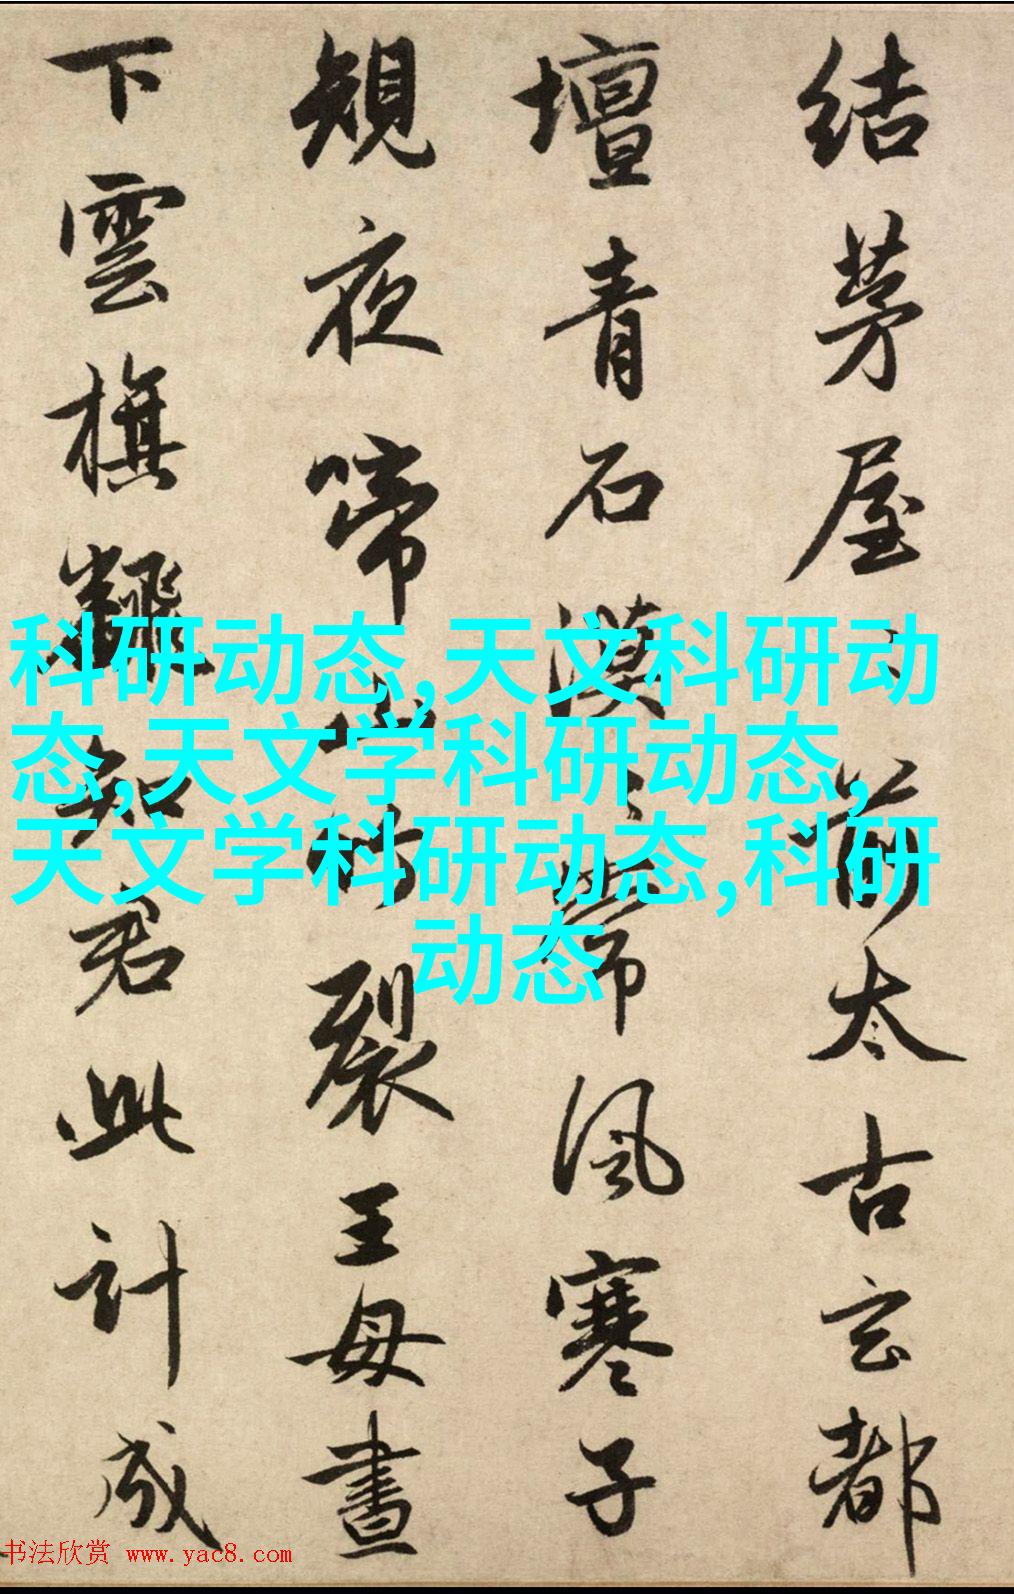 结茅屋、前太古玄都
壇青石漠、常風寒子
規夜啼山竹裂王母晝
下雲旗飜知君此計成
科研动态,天文科研动
态,天文学科研动态,
天文学科研动态,科研
动态
书法欣赏 www.yac8.com